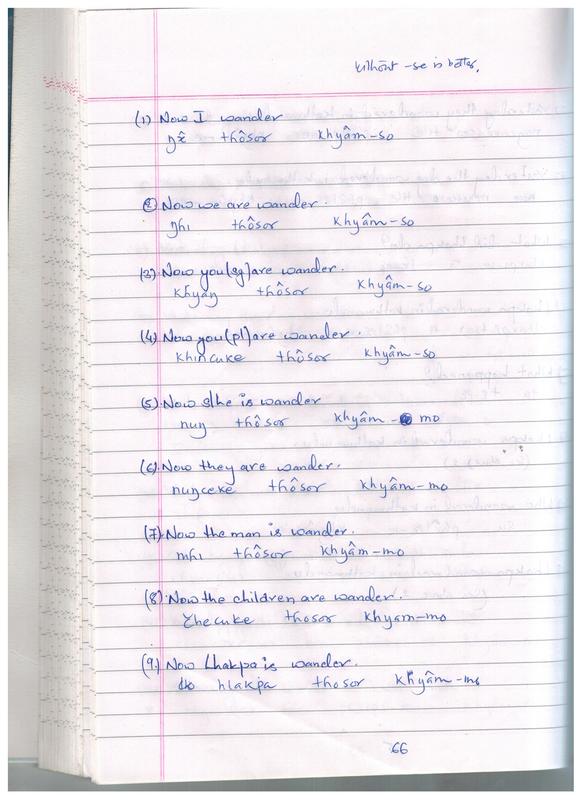 without -se is better,
(1) Now I wander
ŋâ thôsor khyâm-so
(2) Now we are wander.
ŋhi thôsor khyâm-so
(3) Now you(sg) are wander.
khyaŋ thôsor khyâm-so
(4) Now you(pl) are wander.
khincuke thôsor khyâm-so
(5) Now s/he is wander
nuŋ thôsor khyâm- mo
(6) Now they are wander.
nuŋceke thôsor khyâm-mo
(7) Now the man is wander.
mhi thôsor khyâm-mo
(8) Now the children are wander.
zhecuke thosor khyam-mo
(9.) Now Lhakpa is wander.
hlakpa thosor khyâm-mo
66